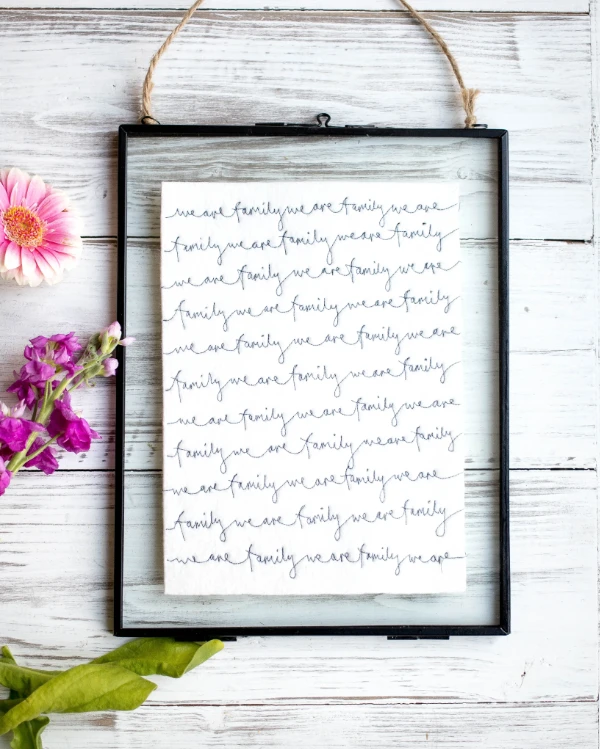 we are family we are family we are
family we are family we are family
we are family we are family we are
family we are family we are family
we are family we are family we are
family we are family we are family
we are family we are family we are
family we are family we are family
we are family we are family we are
family we are family we are family
we are family we are family we are